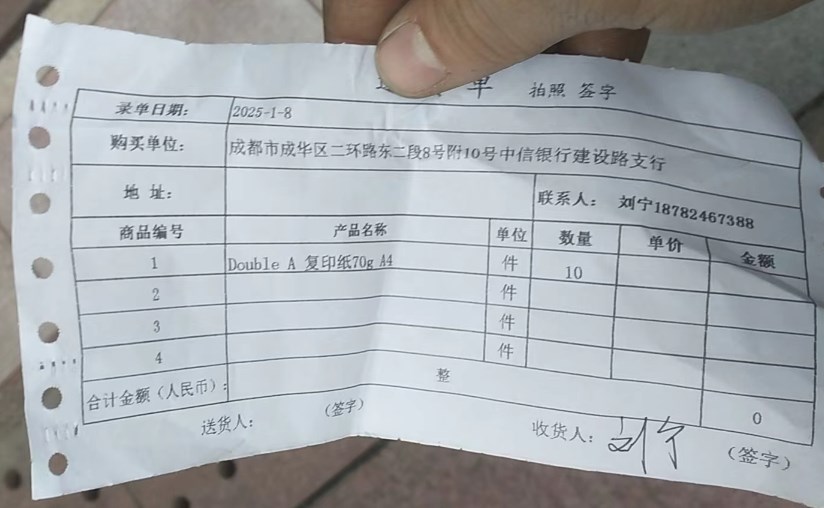 单 拍照 签字
录单日期: 2025-1-8
购买单位: 成都市成华区二环路东二段8号附10号中信银行建设路支行
地 址: 联系人: 刘宁18782467388
商品编号 产品名称 单位 数量 单价 金额
1 Double A 复印纸70g A4 件 10
2 件
3 件
4 件
合计金额(人民币): 整 0
送货人: (签字) 收货人: 刘宁 (签字)